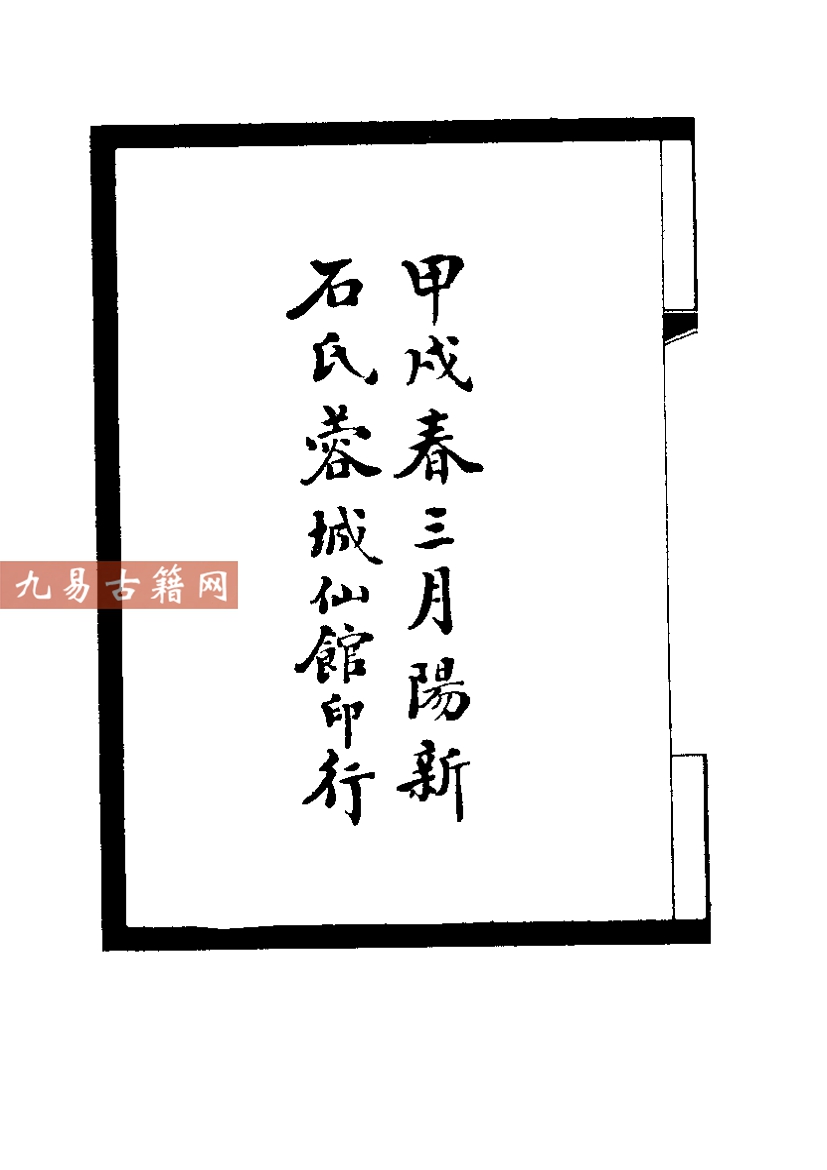 甲戌春三月陽新
石氏蓉城仙館印行
九易古籍网